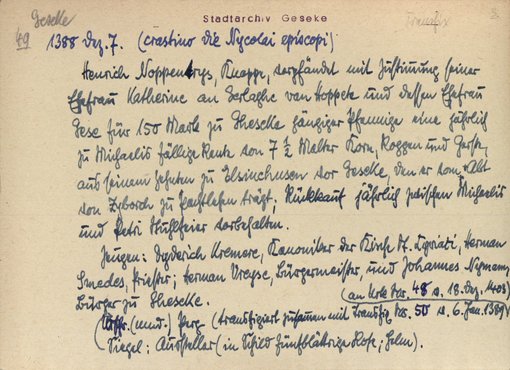 Geseke
Stadtarchiv Geseke
Transfix
49
1388 Dez. 7. (crastino die Nycolai episcopi)
Henrich Noppentrys, Knappe, verpfändet mit Zustimmung seiner
Ehefrau Katherine an Gerlaghe van Hoppeke und dessen Ehefrau
Gese für 150 Mark zu Gheseke gängiger Pfennige eine jährlich
zu Michaelis fällige Rente von 7 1/2 Malter Korn, Roggen und Gerste,
aus seinem Zehnten zu Elsinchusen vor Geseke, den er vom Abt
von Syborch zu Pachtlehen trägt; Rückkauf jährlich zwischen Michaelis
und Petri Stuhlfeier vorbehalten.
Zeugen: Dyderich Kremere, Kanoniker der Kirche St. Cyriaki, Herman
Smedes, Priester; Herman Vreyse, Bürgermeister, und Johannes Nymann,
Bürger zu Gheseke.
(an Urk Nr. 48 v. 18. Dez. 1403)
Urschr. (mnd.) Perg (transfigiert zusammen mit Transfix Nr. 50 v. 6. Jan. 1389)
Siegel: Aussteller (in Schild fünfblättrige Rose; Helm).